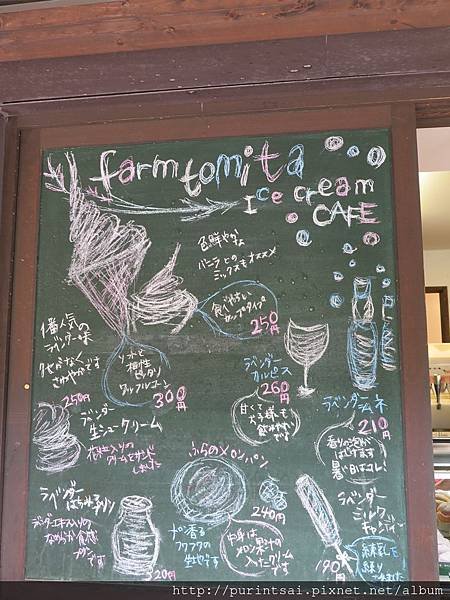 farm tomita
Ice cream
CAFE
色鮮やかな
バニラとの
ミックスもオススメ
1番人気の
ラベンダー味
クセがなく
さわやかです
250円
ソフトと
相性
ピッタリ
ワッフルコーン
300円
食べやすい
カップタイプ
250円
ラベンダー
カルピス
260円
甘くて
お子様も
飲みやすい
です
ラベンダーラムネ
210円
香りの泡が
はじけます
暑い日はコレ!
250円
ラベンダー
生シュークリーム
花粒入りの
クリームをサンド
しました
ラベンダー
はちみつプリン
ラベンダーエキス入りの
なめらか食感
プリン
です
320円
ふらのメロンパン
240円
メロン香る
フワフワの
生地です
中身は
メロン果汁の
入ったクリーム
です
ラベンダー
ミルク
キャンディ
190円
練乳を
練り
http://purintsai.pixnet.net/album